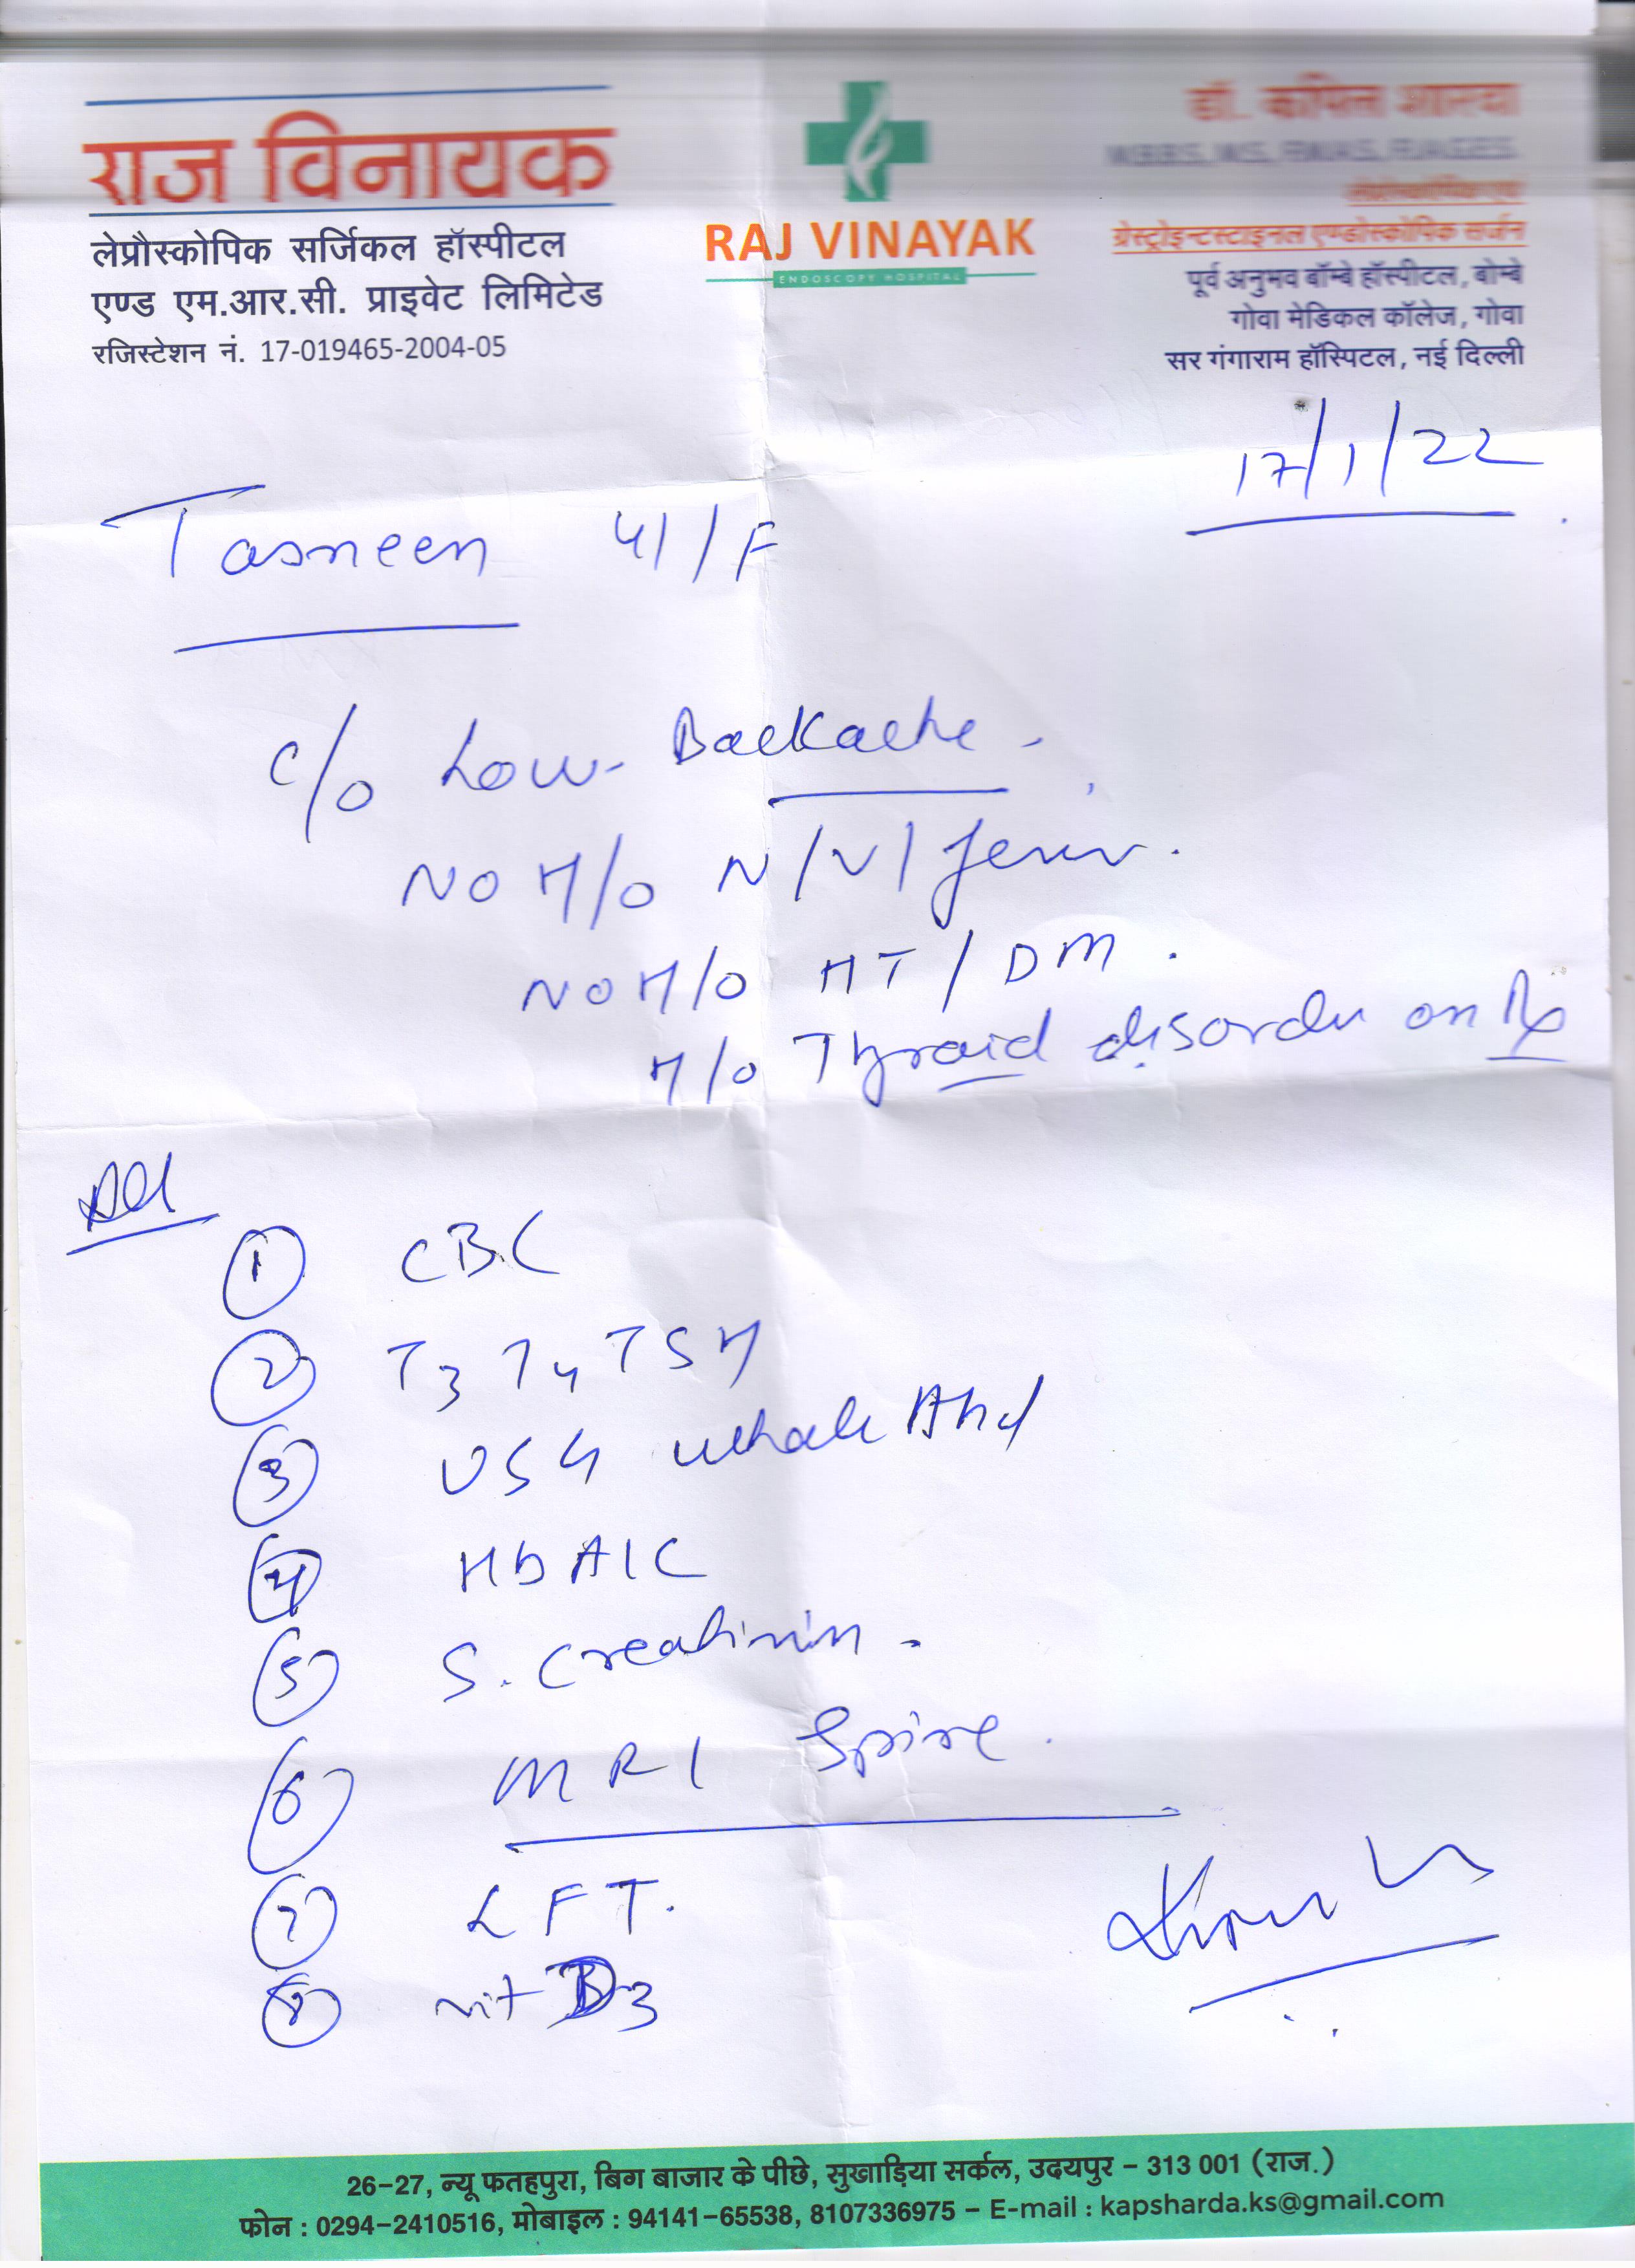 राज विनायक
लेप्रौस्कोपिक सर्जिकल हॉस्पीटल
एण्ड एम.आर.सी. प्राइवेट लिमिटेड
रजिस्टेशन नं. 17-019465-2004-05
RAJ VINAYAK
ENDOSCOPY HOSPITAL
डॉ. कपिल शारदा
लेप्रोस्कोपिक एवं
ग्रेस्ट्रोइन्टस्टाइनल एण्डोस्कोपिक सर्जन
पूर्व अनुभव बॉम्बे हॉस्पीटल, बोम्बे
गोवा मेडिकल कॉलेज, गोवा
सर गंगाराम हॉस्पिटल, नई दिल्ली
17/1/22
Tasneen 41/F
C/o Low-Backache
NO H/O N/V/fever.
NO H/O HT/DM.
H/O Thyroid disorder on Rx
Ad
1 CBC
2 T3 T4 TSH
3 USG whole Abd
4 HbA1C
5 S. Creatinin
6 MRI Spine.
7 LFT.
8 vit D3
26-27, न्यू फतहपुरा, बिग बाजार के पीछे, सुखाड़िया सर्कल, उदयपुर - 313 001 (राज.)
फोन : 0294-2410516, मोबाइल : 94141-65538, 8107336975 - E-mail : kapsharda.ks@gmail.com